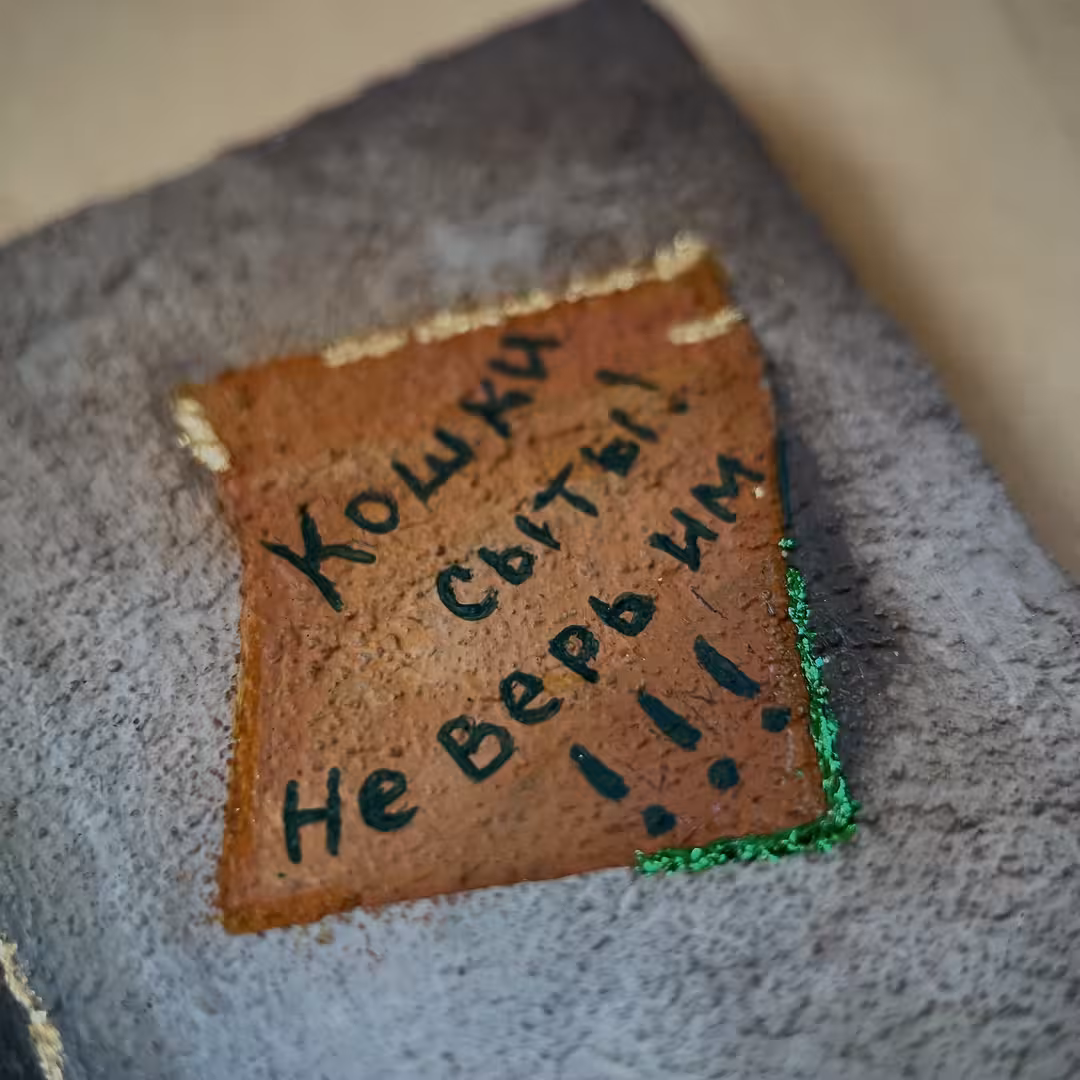 Кошки
сыты!
Не Верь им
!!!